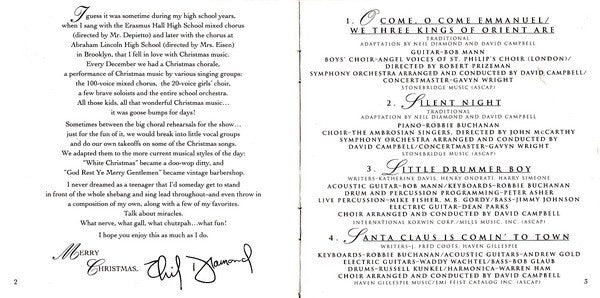 I guess it was sometime during my high school years,
when I sang with the Erasmus Hall High School mixed chorus
(directed by Mr. Depietto) and later with the chorus at
Abraham Lincoln High School (directed by Mrs. Eisen)
in Brooklyn, that I fell in love with Christmas music.
Every December we had a Christmas chorale,
a performance of Christmas music by various singing groups:
the 100-voice mixed chorus, the 20-voice girls' choir,
a few brave soloists and the entire school orchestra.
All those kids, all that wonderful Christmas music...
it was goose bumps for days!
Sometimes between the big choral rehearsals for the show...
just for the fun of it, we would break into little vocal groups
and do our own takeoffs on some of the Christmas songs.
We adapted them to the more current musical styles of the day:
"White Christmas" became a doo-wop ditty, and
"God Rest Ye Merry Gentlemen" became vintage barbershop.
I never dreamed as a teenager that I'd someday get to stand
in front of the whole shebang and sing lead throughout-and even throw in
a composition of my own, along with a few of my favorites.
Talk about miracles.
What nerve, what gall, what chutzpah...what fun!
I hope you enjoy this as much as I do.
MERRY
CHRISTMAS,
Neil Diamond
2
1. O COME, O COME EMMANUEL/
WE THREE KINGS OF ORIENT ARE
TRADITIONAL
ADAPTATION BY NEIL DIAMOND AND DAVID CAMPBELL
GUITAR-BOB MANN
BOYS' CHOIR-ANGEL VOICES OF ST. PHILIP'S CHOIR (LONDON)/
DIRECTED BY ROBERT PRIZEMAN
SYMPHONY ORCHESTRA ARRANGED AND CONDUCTED BY DAVID CAMPBELL/
CONCERTMASTER-GAVYN WRIGHT
STONEBRIDGE MUSIC (ASCAP)
2. SILENT NIGHT
TRADITIONAL
ADAPTATION BY NEIL DIAMOND AND DAVID CAMPBELL
PIANO-ROBBIE BUCHANAN
CHOIR-THE AMBROSIAN SINGERS, DIRECTED BY JOHN McCARTHY
SYMPHONY ORCHESTRA ARRANGED AND CONDUCTED BY
DAVID CAMPBELL/CONCERTMASTER-GAVYN WRIGHT
STONEBRIDGE MUSIC (ASCAP)
3. LITTLE DRUMMER BOY
WRITERS-KATHERINE DAVIS, HENRY ONORATI, HARRY SIMEONE
ACOUSTIC GUITAR-BOB MANN/KEYBOARDS-ROBBIE BUCHANAN
DRUM AND PERCUSSION PROGRAMMING-PETER ASHER
LIVE PERCUSSION-MIKE FISHER, M.B. GORDY/BASS-JIMMY JOHNSON
ELECTRIC GUITAR-DEAN PARKS
CHOIR ARRANGED AND CONDUCTED BY DAVID CAMPBELL
INTERNATIONAL KORWIN CORP/MILLS MUSIC, INC. (ASCAP)
4. SANTA CLAUS IS COMIN' TO TOWN
WRITERS-J. FRED COOTS, HAVEN GILLESPIE
KEYBOARDS-ROBBIE BUCHANAN/ACOUSTIC GUITARS-ANDREW GOLD
ELECTRIC GUITARS-WADDY WACHTEL/BASS-BOB GLAUB
DRUMS-RUSSELL KUNKEL/HARMONICA-WARREN HAM
CHOIR ARRANGED AND CONDUCTED BY DAVID CAMPBELL
HAVEN GILLESPIE MUSIC/EMI FEIST CATALOG INC. (ASCAP)
3